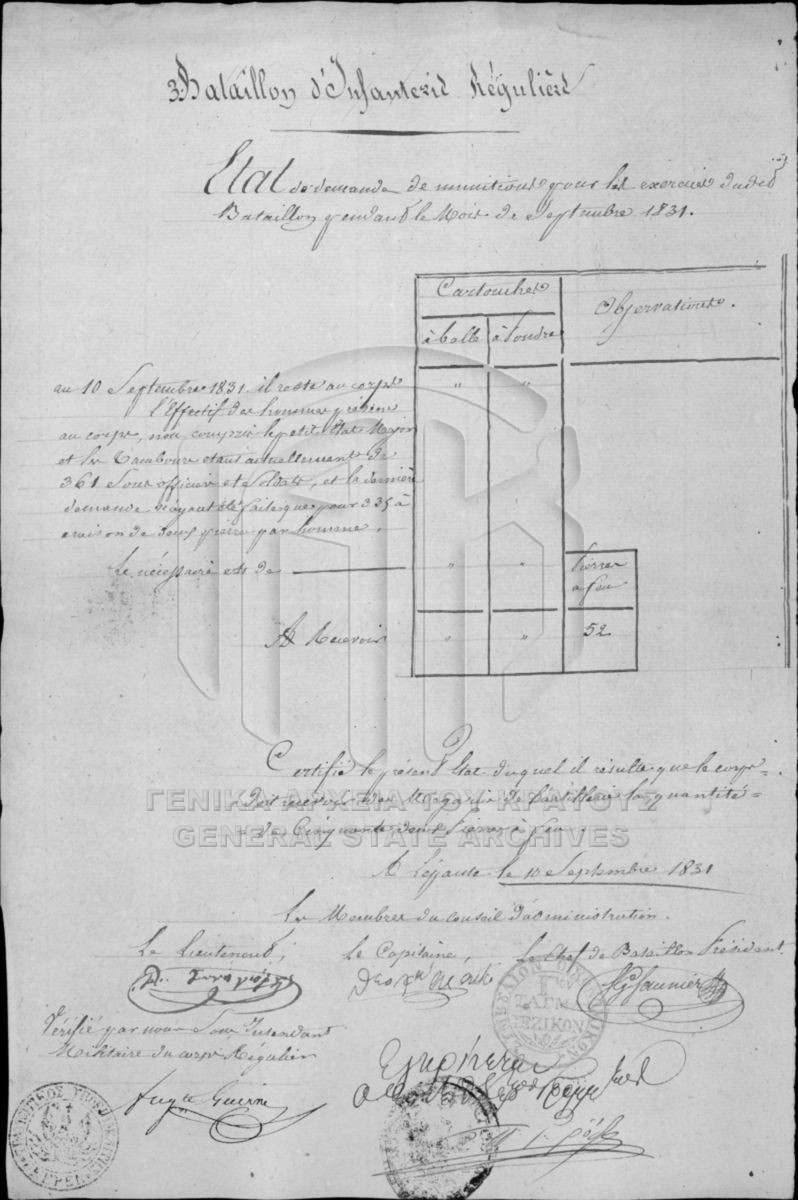 3 Bataillon d'Infanterie Régulière
Etat de demande de munitions pour les exercices dudit
Bataillon pendant le Mois de Septembre 1831.
Cartouches
Observations.
à balle
à Poudre
au 10 Septembre 1831. il reste au corps " "
L'Effectif des hommes présens
au corps, non compris le petit Etat Major
et les Tambours étant actuellement de
361 Sous officiers et Soldats, et la dernière
demande n'ayant été faite que pour 335 à
raison de deux pierres par homme,
Le nécessaire est de " "
Pierres
à feu
A Recevoir " " 52
Certifié le présent Etat duquel il résulte que le corps
doit recevoir des Magasins de l'artillerie la quantité
de Cinquante deux Pierres à feu.
A Lépante le 10 Septembre 1831
Les Membres du Conseil d'administration.
Le Lieutenant, Le Capitaine, Le Chef de Bataillon Président
Vérifié par nous Sous Intendant
Militaire du corps Régulier
ΤΑΓΜ
ΓΕΝΙΚΑ ΑΡΧΕΙΑ ΤΟΥ ΚΡΑΤΟΥΣ
GENERAL STATE ARCHIVES